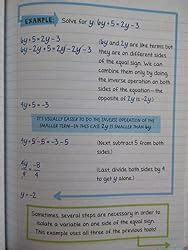 EXAMPLE: Solve for y: 6y + 5 = 2y - 3.
6y + 5 = 2y - 3
6y - 2y + 5 = 2y - 2y - 3
(6y and 2y are like terms but
they are on different sides of
the equal sign. We can
combine them only by doing
the inverse operation on both
sides of the equation—the
opposite of 2y is -2y.)
4y + 5 = -3
IT'S USUALLY EASIER TO DO THE INVERSE OPERATION OF THE
SMALLER TERM—IN THIS CASE 2y IS SMALLER THAN 6y.
4y + 5 - 5 = -3 - 5
(Next subtract 5 from both
sides.)
4y/4 = -8/4
(Last divide both sides by 4
to get y alone.)
y = -2
Sometimes, several steps are necessary in order to
isolate a variable on one side of the equal sign. This
example uses all three of the previous tools!